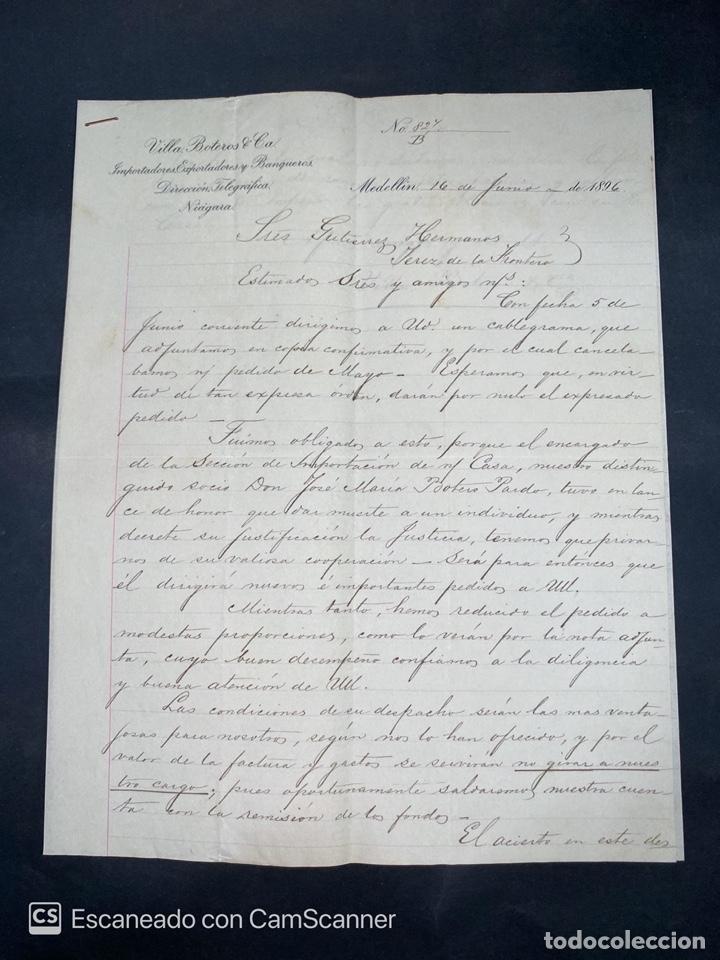 No. 827
B
Villa, Boteros & Ca.
Importadores, Exportadores y Banqueros.
Dirección Telegráfica,
Niágara.
Medellín, 16 de Junio de 1896
Sres Gutierrez Hermanos
Jerez de la Frontera
Estimados Sres y amigos n/s:
Con fecha 5 de
Junio corriente dirigimos a Ud. un cablegrama, que
adjuntamos en copia confirmativa, y por el cual cancela-
bamos n/ pedido de Mayo — Esperamos que, en vir-
tud de tan expresa órden, darán por nulo el expresado
pedido —
Fuimos obligados a esto, porque el encargado
de la Sección de Importación de n/ Casa, nuestro distin-
guido socio Don José María Botero Pardo, tuvo en lan-
ce de honor que dar muerte a un individuo, y mientras
decrete su justificación la Justicia, tenemos que privar-
nos de su valiosa cooperación — Será para entónces que
él dirigirá nuevos é importantes pedidos a UU.
Mientras tanto, hemos reducido el pedido a
modestas proporciones, como lo verán por la nota adjun-
ta, cuyo buen decempeño confiamos a la diligencia
y buena atención de UU.
Las condiciones de su despacho serán las mas venta-
josas para nosotros, según nos lo han ofrecido, y por el
valor de la factura y gastos se servirán no girar a nues
tro cargo, pues oportunamente saldaremos nuestra cuen-
ta con la remisión de los fondos —
El acierto en este des
CS Escaneado con CamScanner
todocoleccion